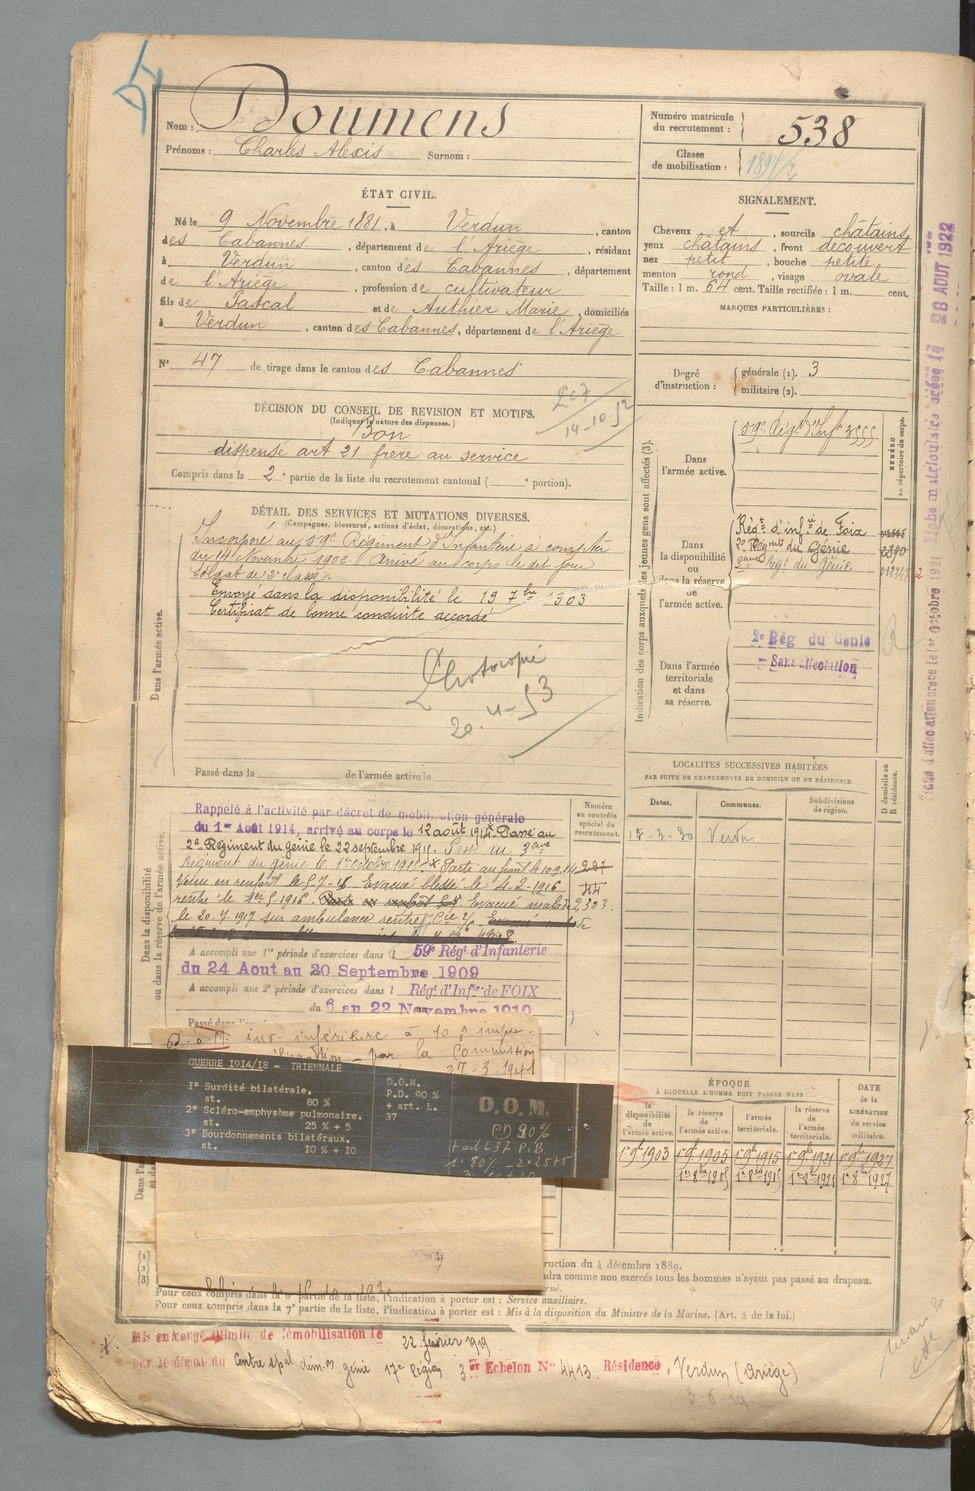 Nom : Doumens
Prénoms : Charles Alexis Surnom :
Numéro matricule du recrutement : 538
Classe de mobilisation :
ÉTAT CIVIL.
Né le 9 Novembre 1881, à Verdun, canton
des Cabannes, département de l'Ariège, résidant
à Verdun, canton des Cabannes, département
de l'Ariège, profession de cultivateur
fils de Pascal et de Authier Marie, domiciliés
à Verdun, canton des Cabannes, département de l'Ariège
N° 47 de tirage dans le canton des Cabannes
SIGNALEMENT.
Cheveux et, sourcils châtains
yeux châtains, front découvert
nez petit, bouche petite
menton rond, visage ovale
Taille : 1 m. 64 cent. Taille rectifiée : 1 m. cent.
MARQUES PARTICULIÈRES :
Degré d'instruction : générale (1). 3
militaire (2).
DÉCISION DU CONSEIL DE REVISION ET MOTIFS.
(Indiquer la nature des dispenses.)
Bon
dispensé art 21 frère au service
Compris dans la 2e partie de la liste du recrutement cantonal ( e portion).
14-10-52
DÉTAIL DES SERVICES ET MUTATIONS DIVERSES.
(Campagnes, blessures, actions d'éclat, décorations, etc.)
Dans l'armée active.
Incorporé au 59e Régiment d'Infanterie à compter
du 14 Novembre 1902 Arrivé au corps le dit jour
Soldat de 2e classe.
Envoyé dans la disponibilité le 19 7bre 1903
Certificat de bonne conduite accordé
Photocopié
20-4-53
Passé dans la de l'armée active le
Indication des corps auxquels les jeunes gens sont affectés (3).
NUMÉRO au répertoire du corps.
Dans l'armée active.
59e Régt d'Infie 3555
Dans la disponibilité ou dans la réserve de l'armée active.
Régt d'infie de Foix
2e Régmt du Génie
3ème Régt du Génie
Dans l'armée territoriale et dans sa réserve.
2e Rég du Génie
Sans affectation
LOCALITÉS SUCCESSIVES HABITÉES
PAR SUITE DE CHANGEMENTS DE DOMICILE OU DE RÉSIDENCE.
Dates. Communes. Subdivisions de région. D domicile ou R résidence.
18-3-30 Verdun
Dans la disponibilité ou dans la réserve de l'armée active.
Numéro au contrôle spécial du recrutement.
Rappelé à l'activité par décret de mobilisation générale
du 1er Août 1914, arrivé au corps le 12 août 1914. Passé au
2e Régiment du génie le 22 septembre 1915. Passé au 3ème
Régiment du génie le 1er octobre 1915
Venu en renfort le Evacué blessé le 4-2-1916
rentré le Evacué malade 2303.
le 20.7.1917 sur ambulance rentré
A accompli une 1re période d'exercices dans l 59e Régt d'Infanterie
du 24 Aout au 20 Septembre 1909
A accompli une 2e période d'exercices dans l Régt d'Infie de FOIX
du 6 au 22 Novembre 1910
inv. inférieure à 10 %
par la Commission
27-3-1941
GUERRE 1914/18 - TRIENNALE
1° Surdité bilatérale.
st. 80 %
2° Scléro-emphysème pulmonaire.
st. 25 % + 5
3° Bourdonnements bilatéraux.
st. 10 % + 10
D.O.M.
P.D. 90 %
+ art. L.
37
D.O.M.
PD 90%
ÉPOQUE
À LAQUELLE L'HOMME DOIT PASSER DANS
la disponibilité de l'armée active.
la réserve de l'armée active.
l'armée territoriale.
la réserve de l'armée territoriale.
DATE de la LIBÉRATION du service militaire.
1er 9bre 1903 1er 9bre 1905 1er 9bre 1915 1er 9bre 1921 1er 9bre 1927
1er 8bre 1905 1er 8bre 1915 1er 8bre 1921 1er 8bre 1927
(1)
(2)
(3)
ruction du 4 décembre 1889.
dra comme non exercés tous les hommes n'ayant pas passé au drapeau.
Pour ceux compris dans la partie de la liste, l'indication à porter est : Service auxiliaire.
Pour ceux compris dans la 7e partie de la liste, l'indication à porter est : Mis à la disposition du Ministre de la Marine. (Art. 4 de la loi.)
Mis en congé illimité de démobilisation le 22 février 1919
par le dépôt du génie 17e Région 3e Echelon N° 4413 Résidence, Verdun (Ariège)
28 AOUT 1922